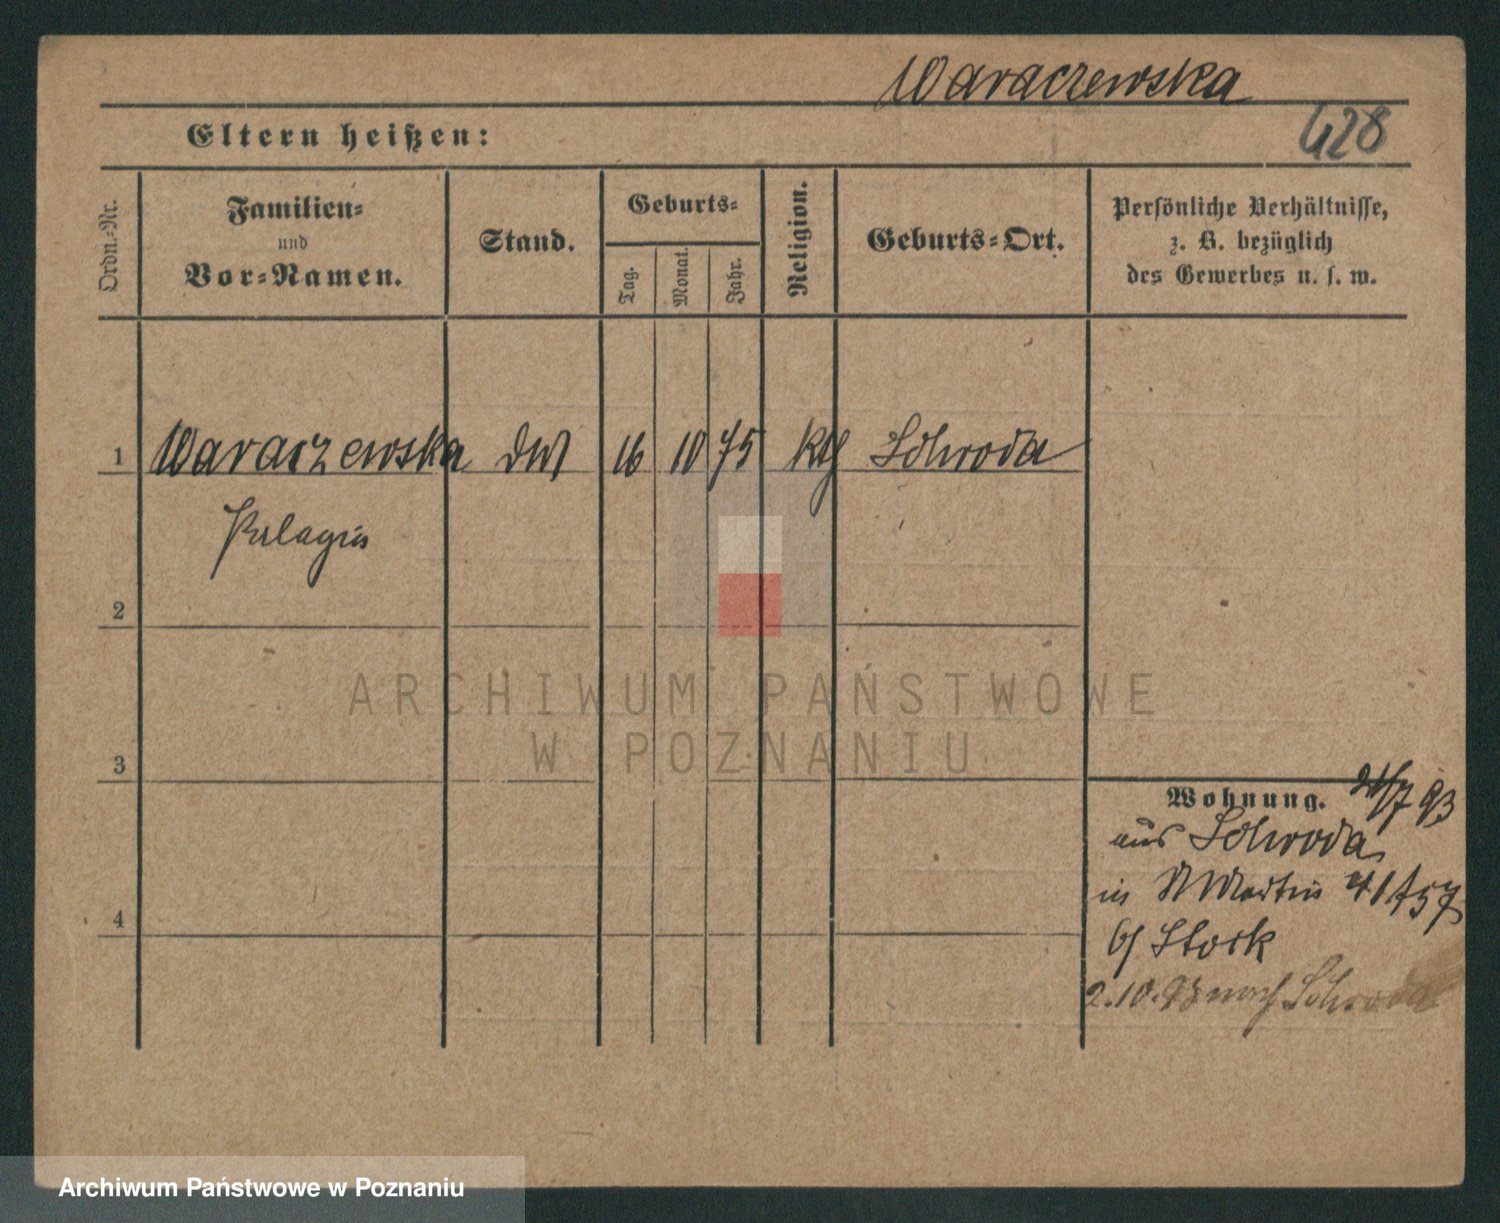 Waraczewska
428
Eltern heißen:
Ordn.-Nr.
Familien-
und
Vor-Namen.
Stand.
Geburts-
Tag.
Monat.
Jahr.
Religion.
Geburts-Ort.
Persönliche Verhältnisse,
z. B. bezüglich
des Gewerbes u. s. w.
1 Waraczewska 16 10 75 kth Schroda
Pelagia
2
ARCHIWUM PAŃSTWOWE
W POZNANIU
3
Wohnung. /7 93
aus Schroda
in St Martin 41
b/ Stock
4
2.10.93 nach Schroda
Archiwum Państwowe w Poznaniu